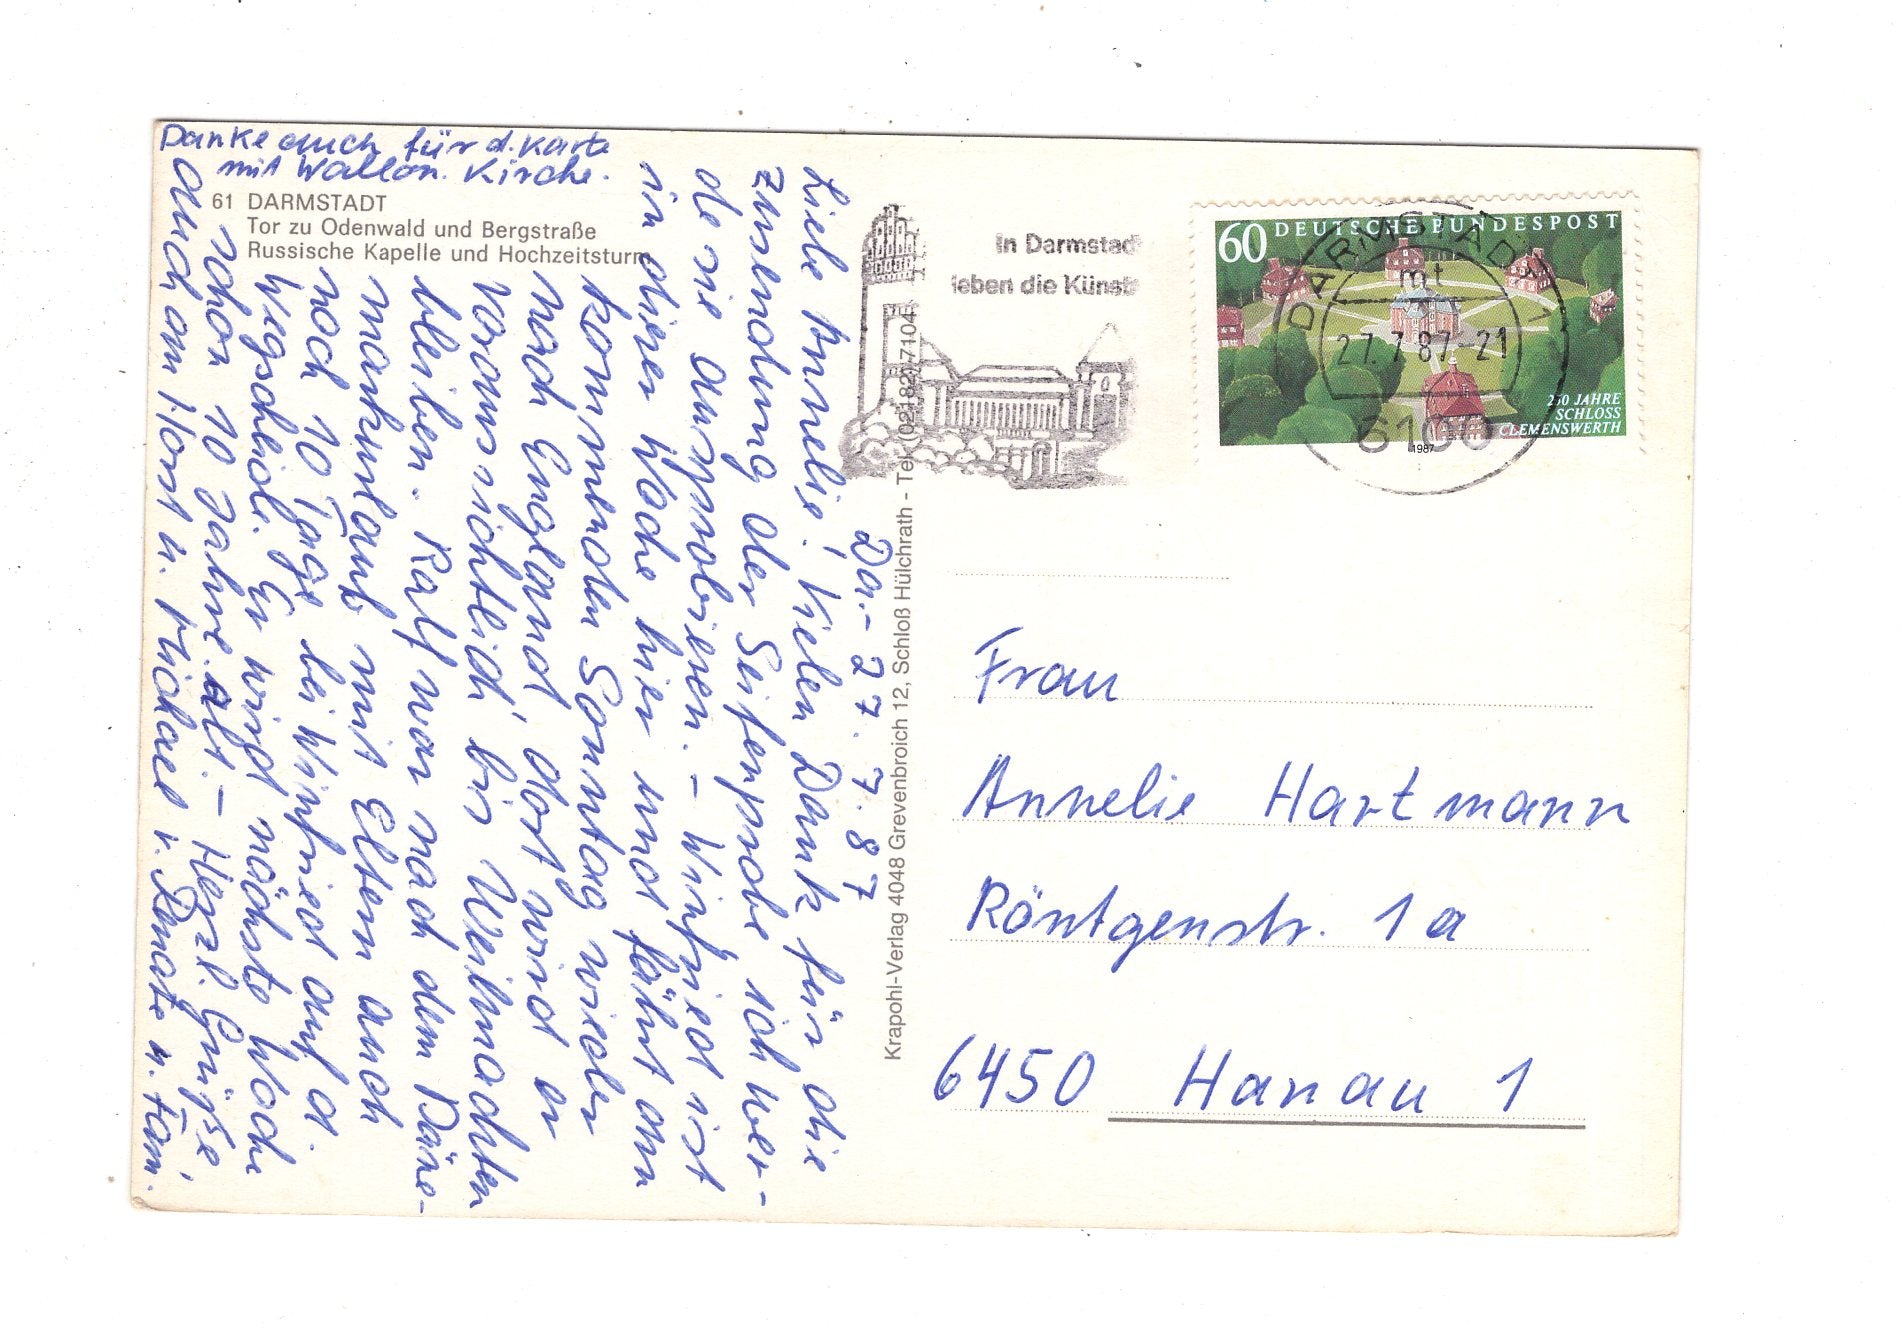 Danke auch für d. Karte
mit Wallon. Kirche.
61 DARMSTADT
Tor zu Odenwald und Bergstraße
Russische Kapelle und Hochzeitsturm
Da.- 27.7.87
Liebe Annelie! Vielen Dank für die
Zusendung der Seifenprobe ich wer-
de sie ausprobieren. - Winfried ist
in dieser Woche hier und fährt am
kommenden Sonntag wieder
nach England, dort wird er
voraussichtlich bis Weihnachten
bleiben. Ralf war nach dem Däne-
markurlaub mit Eltern auch
noch 10 Tage bei Winfried auf d.
Wegscheide. Er wird nächste Woche
schon 10 Jahre alt. - Herzl. Grüße
auch an Horst u. Michael v. Renate u. Fam.
Krapohl-Verlag 4048 Grevenbroich 12, Schloß Hülchrath - Tel. (02182) 7104
In Darmstad
leben die Künst
60 DEUTSCHE BUNDESPOST
250 JAHRE
SCHLOSS
CLEMENSWERTH
1987
DARMSTADT 1
mt
27.7.87-21
6100
Frau
Annelie Hartmann
Röntgenstr. 1a
6450 Hanau 1